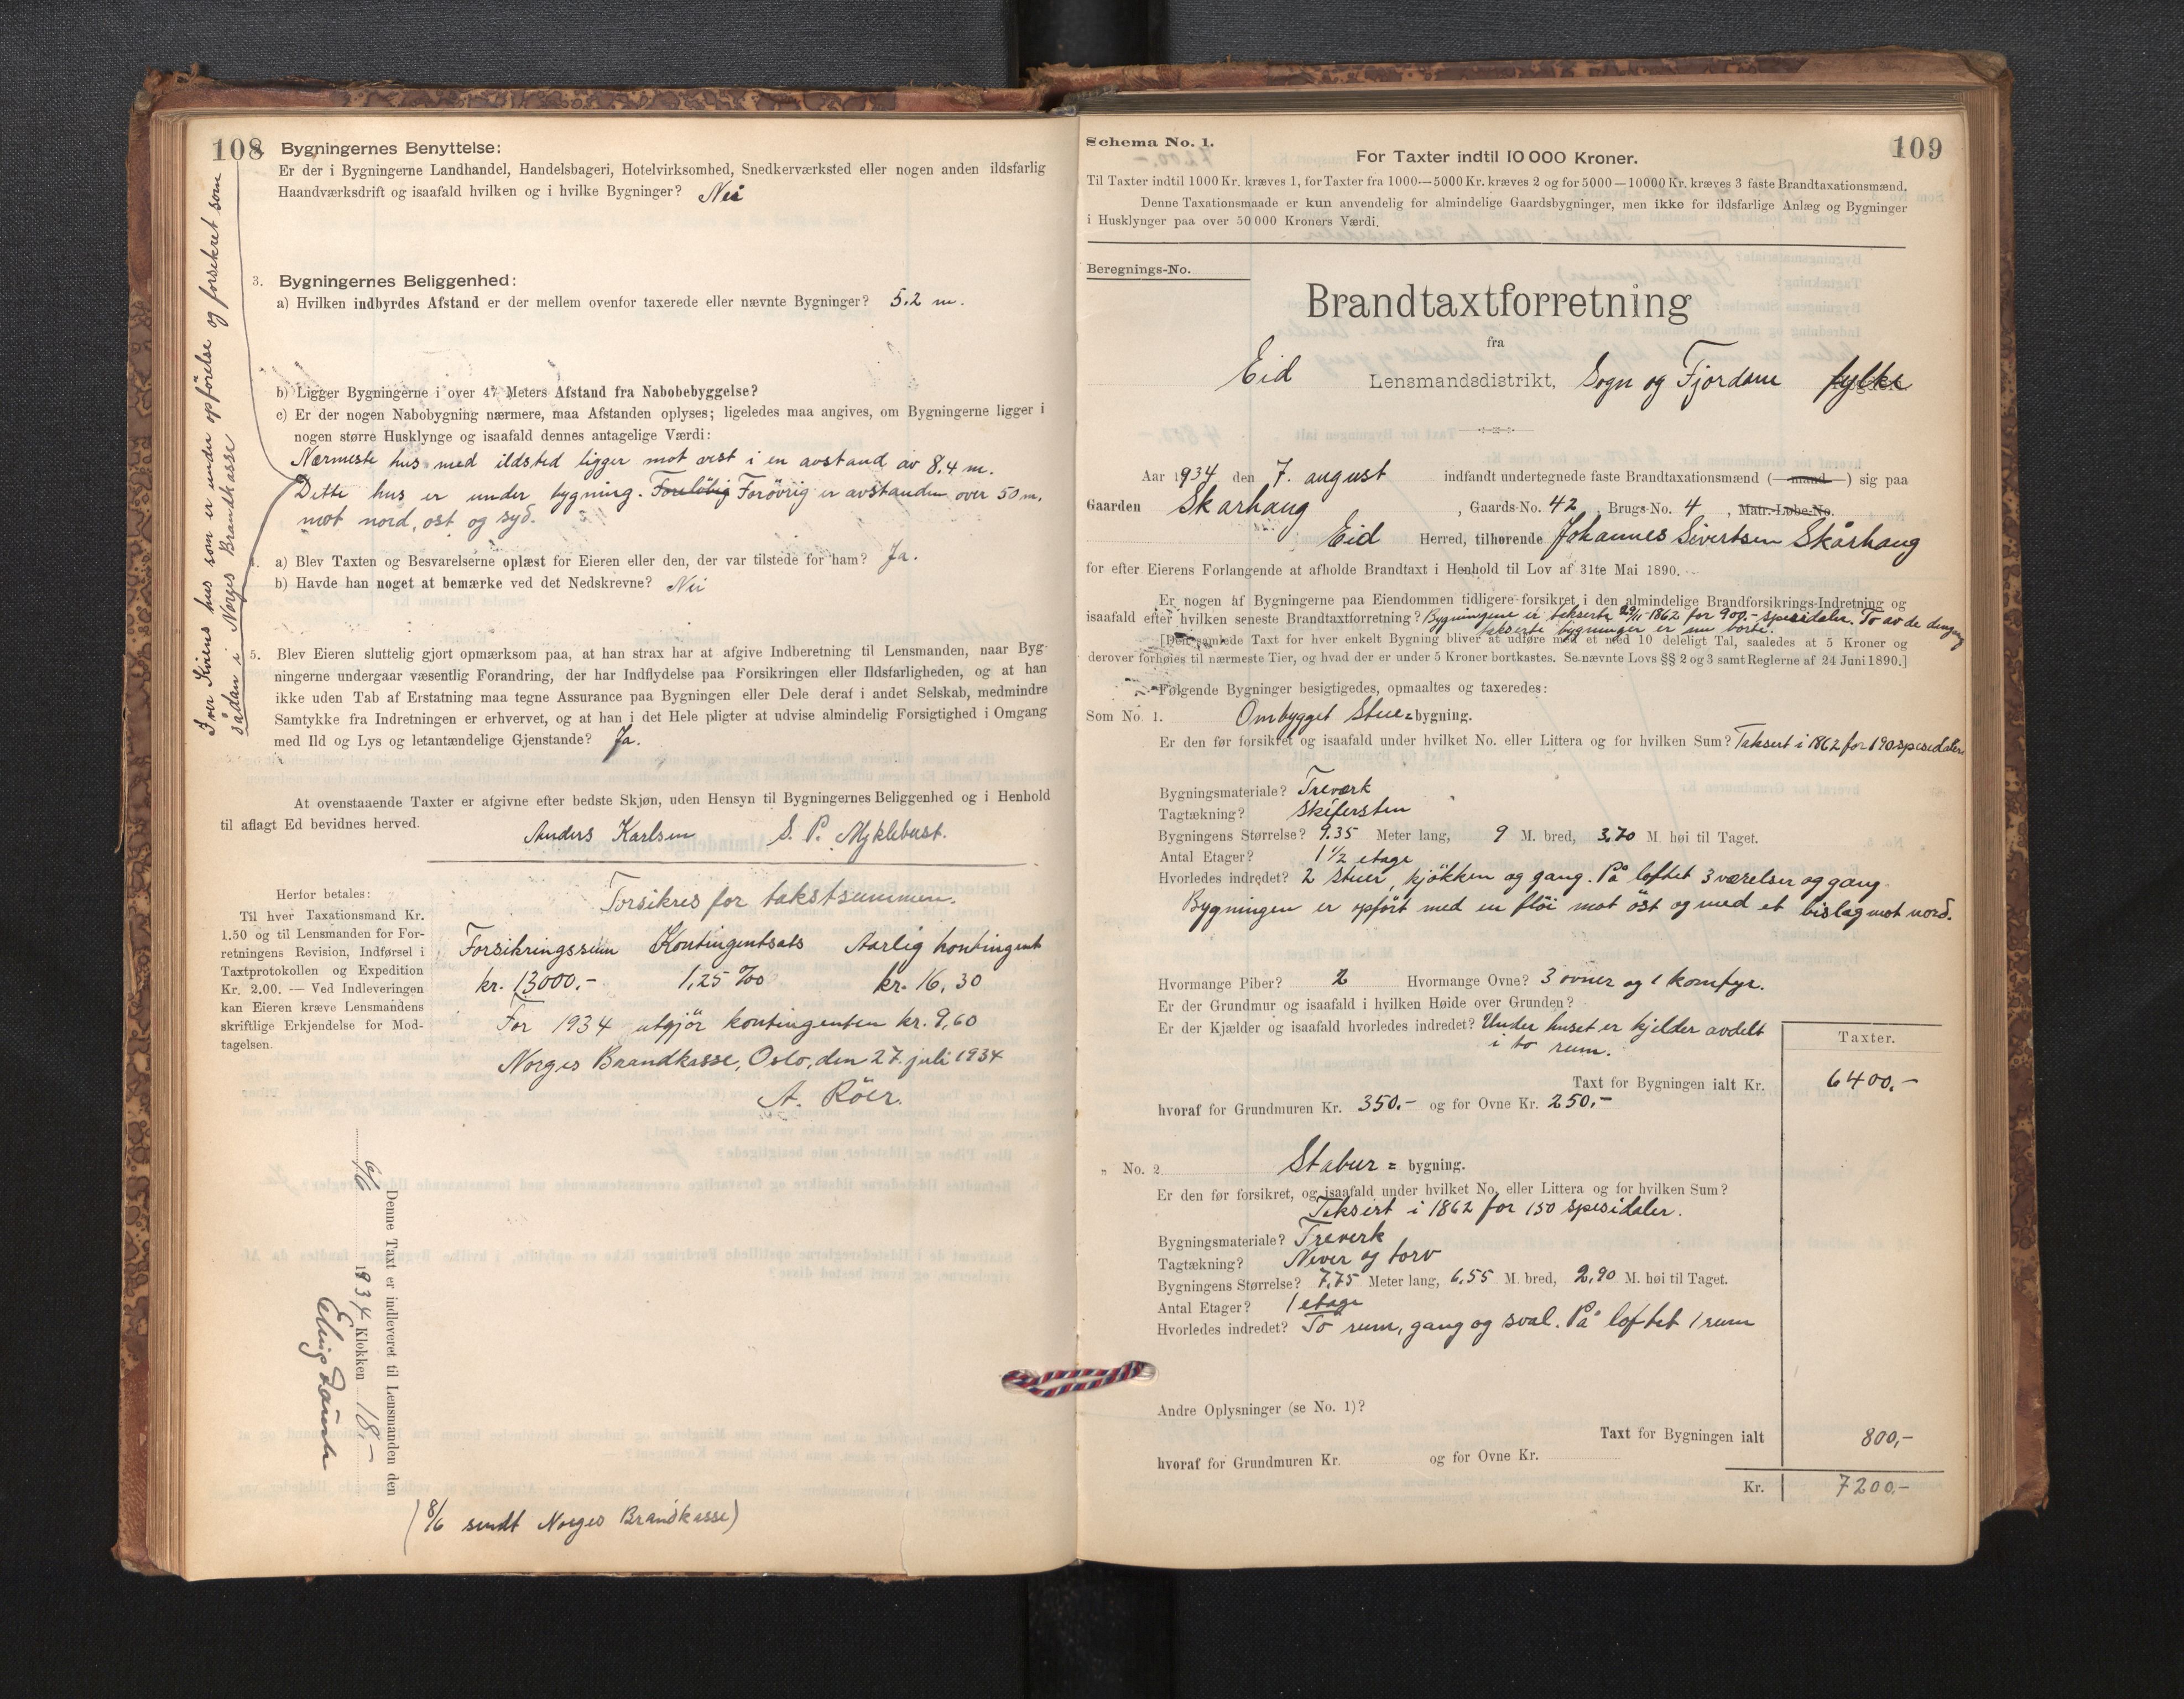 108
2. Bygningernes Benyttelse:
Er der i Bygningerne Landhandel, Handelsbageri, Hotelvirksomhed, Snedkerværksted eller nogen anden ildsfarlig
Haandværksdrift og isaafald hvilken og i hvilke Bygninger? Nei
3. Bygningernes Beliggenhed:
a) Hvilken indbyrdes Afstand er der mellem ovenfor taxerede eller nævnte Bygninger? 5,2 m.
b) Ligger Bygningerne i over 47 Meters Afstand fra Nabobebyggelse?
c) Er der nogen Nabobygning nærmere, maa Afstanden oplyses; ligeledes maa angives, om Bygningerne ligger i
nogen større Husklynge og isaafald dennes antagelige Værdi:
Nærmeste hus med ildsted ligger mot vest i en avstand av 8,4 m.
Dette hus er under bygning. Foreløbig Forøvrig er avstanden over 50 m.
mot nord, ost og syd.
Iver Sivens hus som er under opførelse og forsikret som
sådan i Norges Brandkasse
4. a) Blev Taxten og Besvarelserne oplæst for Eieren eller den, der var tilstede for ham? Ja.
b) Havde han noget at bemærke ved det Nedskrevne? Nei
5. Blev Eieren sluttelig gjort opmærksom paa, at han strax har at afgive Indberetning til Lensmanden, naar Byg-
ningerne undergaar væsentlig Forandring, der har Indflydelse paa Forsikringen eller Ildsfarligheden, og at han
ikke uden Tab af Erstatning maa tegne Assurance paa Bygningen eller Dele deraf i andet Selskab, medmindre
Samtykke fra Indretningen er erhvervet, og at han i det Hele pligter at udvise almindelig Forsigtighed i Omgang
med Ild og Lys og letantændelige Gjenstande? Ja.
At ovenstaaende Taxter er afgivne efter bedste Skjøn, uden Hensyn til Bygningernes Beliggenhed og i Henhold
til aflagt Ed bevidnes herved.
Anders Karlsen S. P. Myklebust.
Herfor betales:
Til hver Taxationsmand Kr.
1.50 og til Lensmanden for For-
retningens Revision, Indførsel i
Taxtprotokollen og Expedition
Kr. 2.00. — Ved Indleveringen
kan Eieren kræve Lensmandens
skriftlige Erkjendelse for Mod-
tagelsen.
Forsikres for takstsummen.
Forsikringssum Kontingentsats Aarlig kontingent
kr. 13000.- 1,25 ‰ kr. 16,30
For 1934 utgjør kontingenten kr. 9,60
Norges Brandkasse, Oslo, den 27. juli 1934
A. Röer.
Denne Taxt er indleveret til Lensmanden den
6/6 1934 Klokken 18,-
(8/6 sendt Norges Brandkasse)
Schema No. 1.
109
For Taxter indtil 10 000 Kroner.
Til Taxter indtil 1000 Kr. kræves 1, for Taxter fra 1000—5000 Kr. kræves 2 og for 5000—10000 Kr. kræves 3 faste Brandtaxationsmænd.
Denne Taxationsmaade er kun anvendelig for almindelige Gaardsbygninger, men ikke for ildsfarlige Anlæg og Bygninger
i Husklynger paa over 50 000 Kroners Værdi.
Beregnings-No.
Brandtaxtforretning
fra
Eid Lensmandsdistrikt, Sogn og Fjordane fylke
Aar 1934 den 7. august indfandt undertegnede faste Brandtaxationsmænd (—mand—) sig paa
Gaarden Skarhaug, Gaards-No. 42, Brugs-No. 4, Matr.-Løbe-No.
Eid Herred, tilhørende Johannes Sivertsen Skårhaug
for efter Eierens Forlangende at afholde Brandtaxt i Henhold til Lov af 31te Mai 1890.
Er nogen af Bygningerne paa Eiendommen tidligere forsikret i den almindelige Brandforsikrings-Indretning og
isaafald efter hvilken seneste Brandtaxtforretning? Bygningene er takserte 29/11-1862 for 900.- spesidaler. To av de dengang
takserte bygninger er nu borte.
[Den samlede Taxt for hver enkelt Bygning bliver at udføre med et med 10 deleligt Tal, saaledes at 5 Kroner og
derover forhøies til nærmeste Tier, og hvad der er under 5 Kroner bortkastes. Se nævnte Lovs §§ 2 og 3 samt Reglerne af 24 Juni 1890.]
Følgende Bygninger besigtigedes, opmaaltes og taxeredes:
Som No. 1. Ombygget Stue=bygning.
Er den før forsikret og isaafald under hvilket No. eller Littera og for hvilken Sum? Taksert i 1862 for 190 spesidaler
Bygningsmateriale? Treverk
Tagtækning? Skifersten
Bygningens Størrelse? 9.35 Meter lang, 9 M. bred, 3,70 M. høi til Taget.
Antal Etager? 1 1/2 etage
Hvorledes indredet? 2 stuer, kjøkken og gang. På loftet 3 værelser og gang
Bygningen er opført med en fløi mot øst og med et bislag mot nord.
Hvormange Piber? 2 Hvormange Ovne? 3 ovner og 1 komfyr.
Er der Grundmur og isaafald i hvilken Høide over Grunden?
Er der Kjælder og isaafald hvorledes indredet? Under huset er kjelder avdelt
i to rum.
Taxter.
Taxt for Bygningen ialt Kr. 6400,-
hvoraf for Grundmuren Kr. 350.- og for Ovne Kr. 250,-
„ No. 2 Stabur = bygning.
Er den før forsikret, og isaafald under hvilket No. eller Littera og for hvilken Sum?
Taksert i 1862 for 150 spesidaler.
Bygningsmateriale? Treverk
Tagtækning? Never og torv
Bygningens Størrelse? 7,75 Meter lang, 6,55 M. bred, 2,90 M. høi til Taget.
Antal Etager? 1 etage
Hvorledes indredet? To rum, gang og sval. På loftet 1 rum
Andre Oplysninger (se No. 1)?
Taxt for Bygningen ialt 800,-
hvoraf for Grundmuren Kr. og for Ovne Kr.
Kr. 7200,-